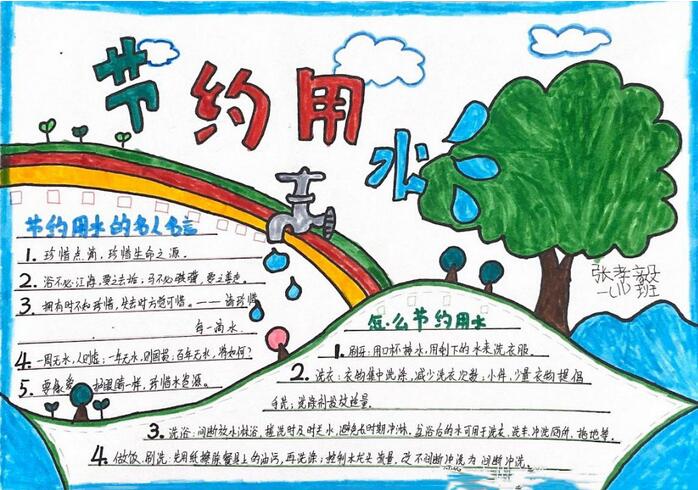 节约用水
张孝毅
一(1)班
节约用水的名人名言
1. 珍惜点滴,珍惜生命之源。
2. 浴不必江海,要之去垢;马不必骐骥,要之善走。
3. 拥有时不知珍惜,失去时方觉可惜。——请珍惜
每一滴水。
4. 一周无水,人则惜;一年无水,则国惜;百年无水,将如何?
5. 要像 眼睛一样,珍惜水资源。
怎么节约用水
1. 刷牙:用口杯接水,用剩下的水来洗衣服。
2. 洗衣:衣物集中洗涤,减少洗衣次数;小件、少量衣物提倡
手洗;洗涤剂投放适量。
3. 洗浴:间断放水淋浴,搓洗时及时关水,避免长时期冲淋。盆浴后的水可用于洗衣、洗车、冲洗厕所、拖地等。
4. 做饭、刷洗:先用纸擦除餐具上的油污,再洗涤;控制水龙头流量,改不间断冲洗为间断冲洗。